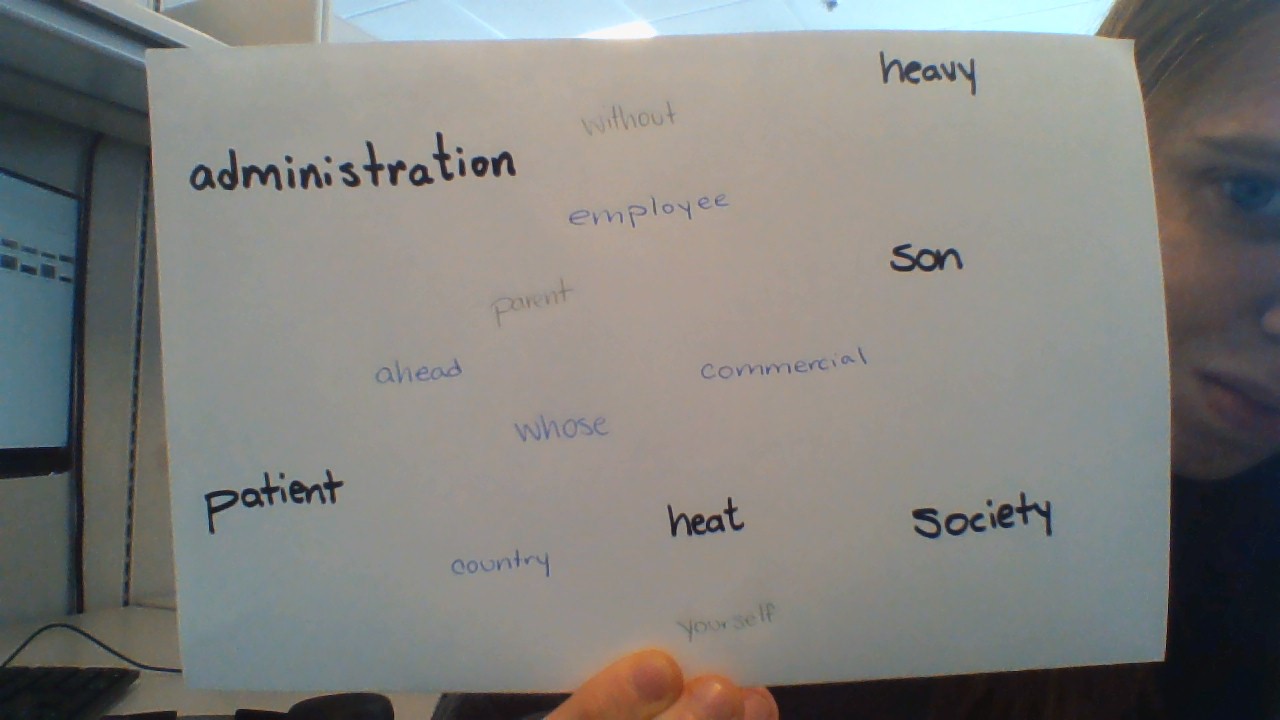 heavy
without
administration
employee
son
parent
ahead
commercial
whose
patient
heat
society
country
yourself